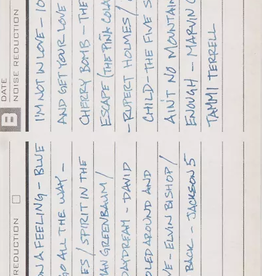 DATE
B NOISE REDUCTION
I'M NOT IN LOVE - 10
AND GET YOUR LOVE
CHERRY BOMB - THE
ESCAPE (THE PINA COLA
- RUPERT HOLMES/
CHILD - THE FIVE S
AIN'T NO MOUNTAIN
ENOUGH - MARVIN G
TAMMI TERRELL
REDUCTION
N A FEELING - BLUE
GO ALL THE WAY -
ES / SPIRIT IN THE
AN GREENBAUM/
DAYDREAM - DAVID
OLED AROUND AND
VE - ELVIN BISHOP/
BACK - JACKSON 5